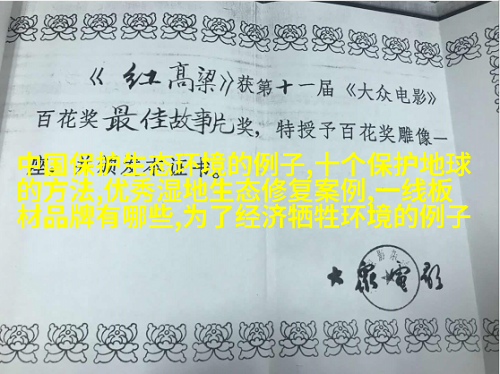 《红高粱》获第十一届《大众电影》
百花奖最佳故事片奖，特授予百花奖雕像一
座，并颁发本证书。
中国保护生态环境的例子,十个保护地球
的方法,优秀湿地生态修复案例,一线板
材品牌有哪些,为了经济牺牲环境的例子
大眾電影